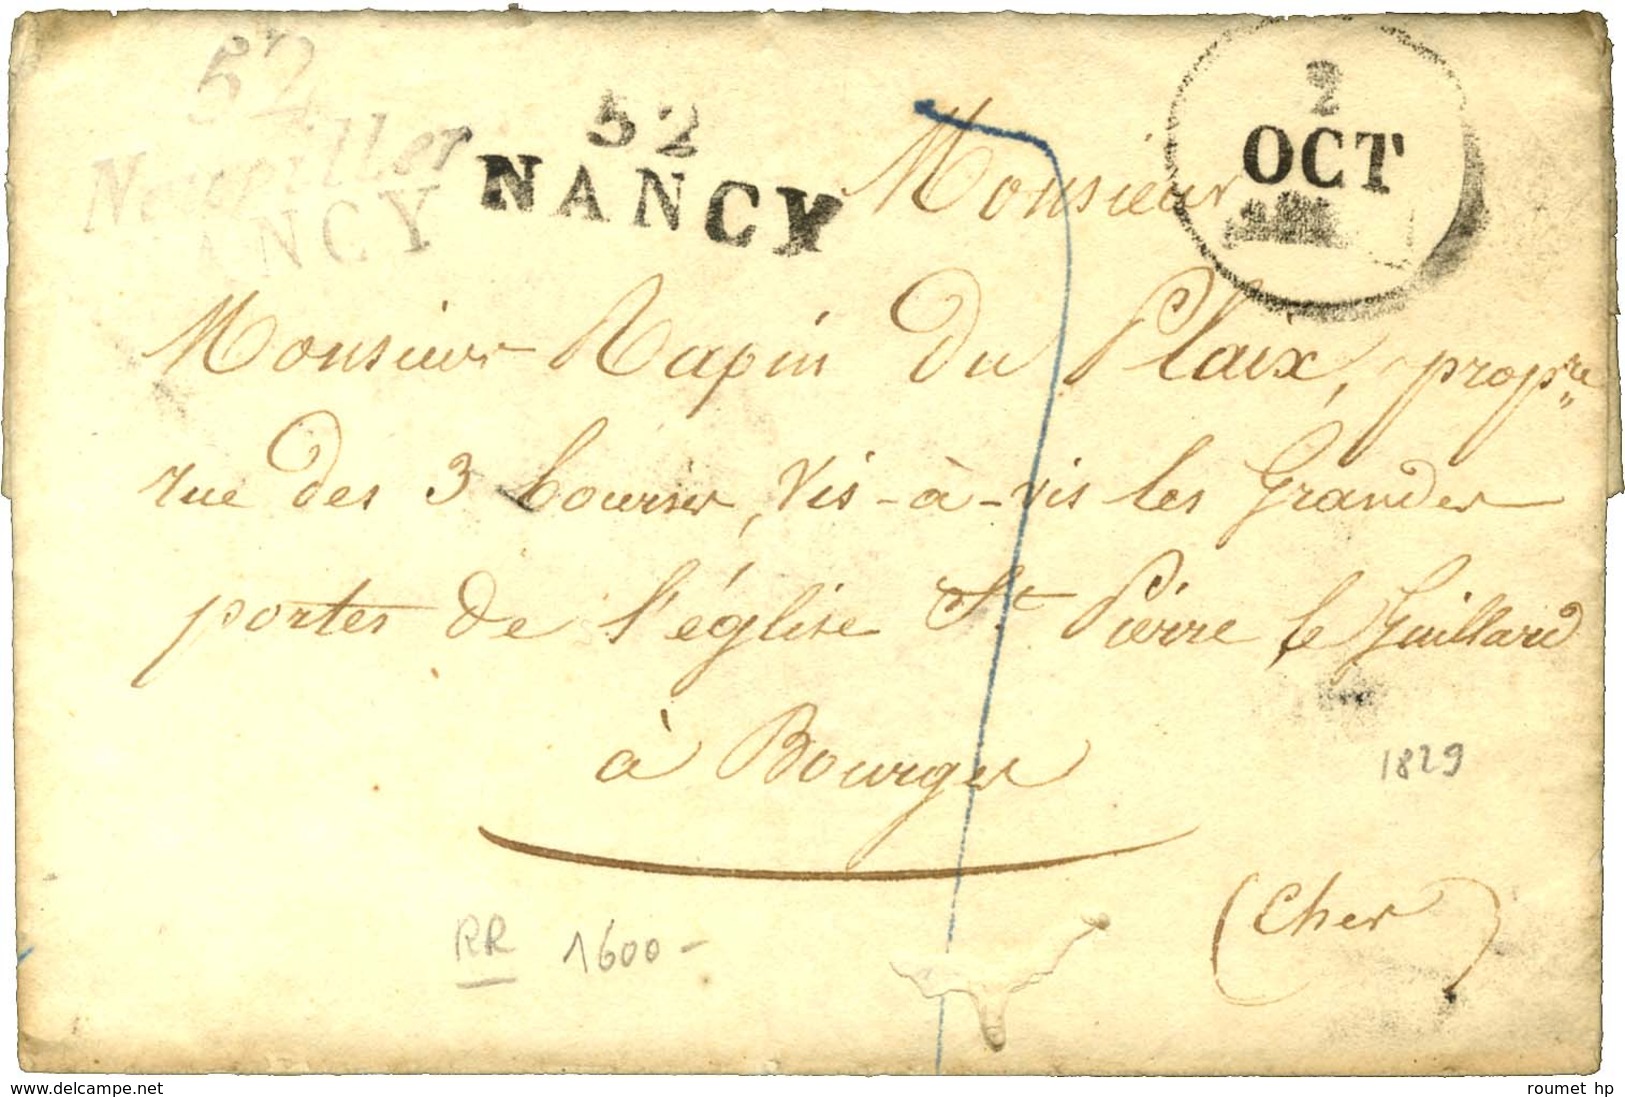 52
Neuviller
NANCY
52
NANCY
2
OCT
Monsieur
Monsieur Rapin Du Plaix, propre
rue des 3 bourses, vis-à-vis les Grandes
portes de l'église St Pierre le Guillard
à Bourges
1829
(Cher)
RR 1600-
www.delcampe.net
roumet hp